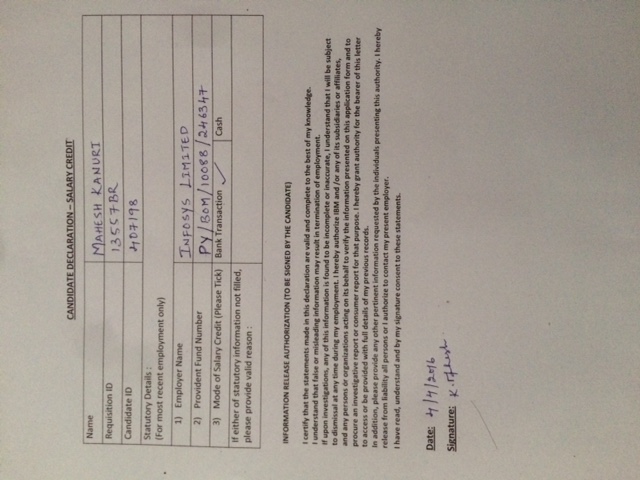 CANDIDATE DECLARATION – SALARY CREDIT
Name MAHESH KANURI
Requisition ID 13557BR
Candidate ID 407198
Statutory Details :
(For most recent employment only)
1) Employer Name INFOSYS LIMITED
2) Provident Fund Number PY/BOM/10088/246347
3) Mode of Salary Credit (Please Tick) Bank Transaction ✓ Cash
If either of statutory information not filled,
please provide valid reason :
INFORMATION RELEASE AUTHORIZATION (TO BE SIGNED BY THE CANDIDATE)
I certify that the statements made in this declaration are valid and complete to the best of my knowledge.
I understand that false or misleading information may result in termination of employment.
If upon investigations, any of this information is found to be incomplete or inaccurate, I understand that I will be subject
to dismissal at any time during my employment. I hereby authorize IBM and /or any of its subsidiaries or affiliates,
and any persons or organizations acting on its behalf to verify the information presented on this application form and to
procure an investigative report or consumer report for that purpose. I hereby grant authority for the bearer of this letter
to access or be provided with full details of my previous records.
In addition, please provide any other pertinent information requested by the individuals presenting this authority. I hereby
release from liability all persons or I authorize to contact my present employer.
I have read, understand and by my signature consent to these statements.
Date: 4/4/2016
Signature: K. Mahesh